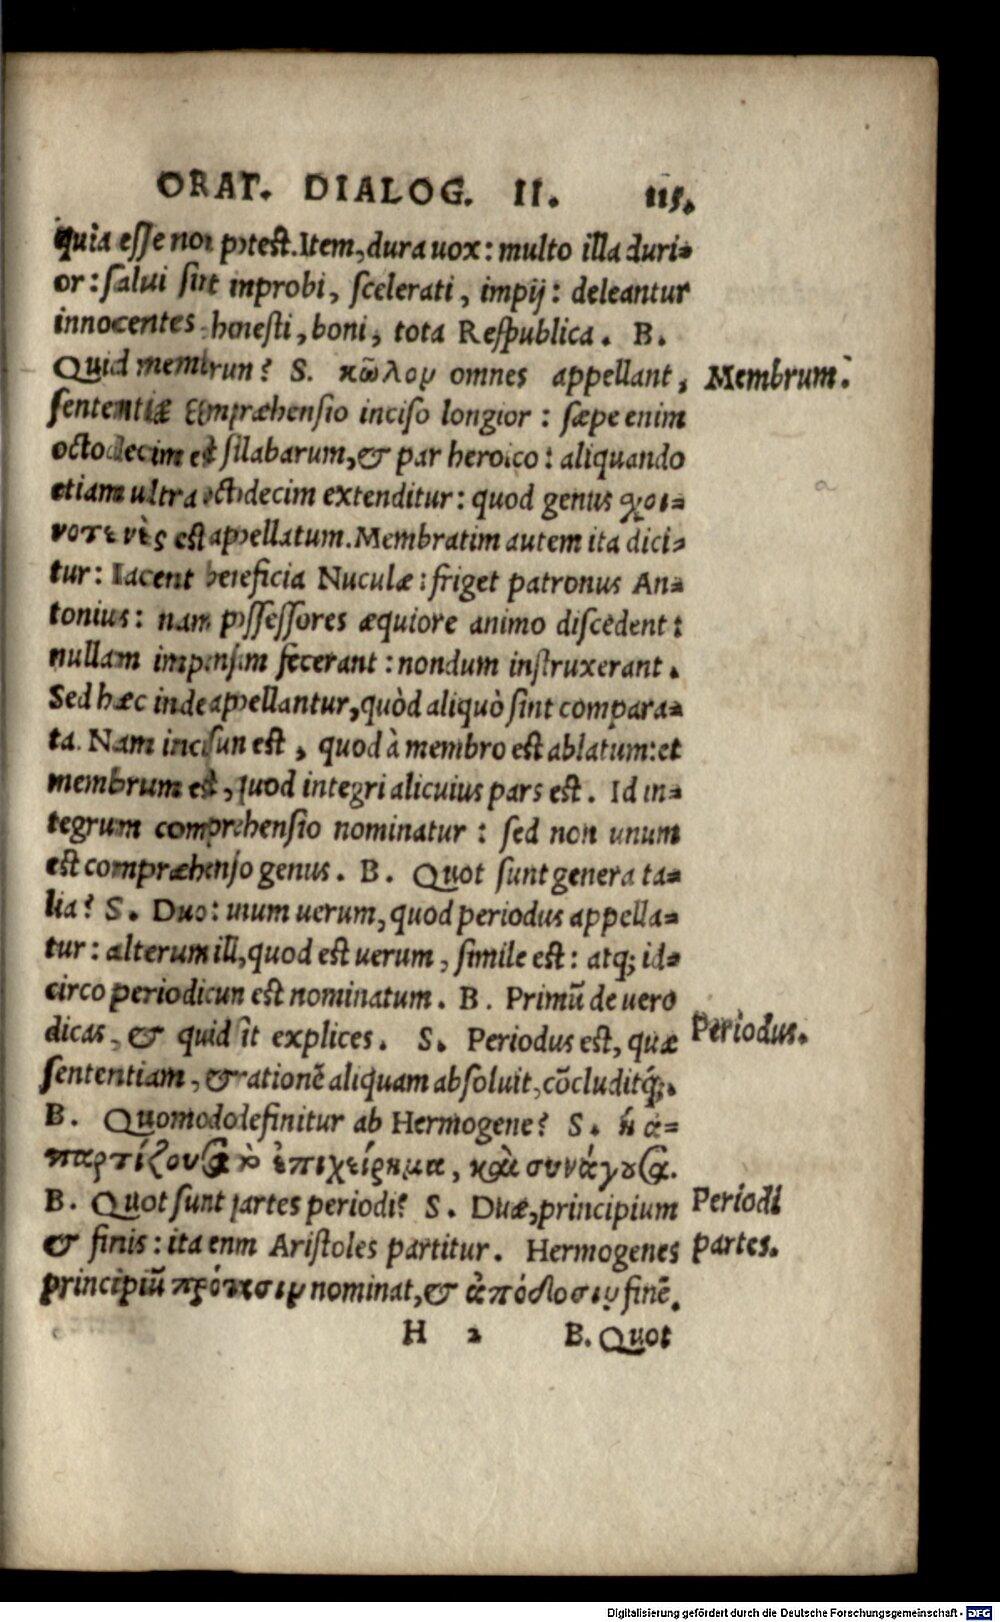 ORAT. DIALOG. II. 115.
quia esse non potest. Item, dura uox: multo illa duri-
or: salui sint inprobi, scelerati, impij: deleantur
innocentes honesti, boni, tota Respublica. B.
Quid membrum? S. κῶλον omnes appellant,
Membrum.
sententiæ compræhensio inciso longior: sæpe enim
octodecim est silabarum, & par heroico: aliquando
etiam ultra octodecim extenditur: quod genus χοι-
νοτενὲς est appellatum. Membratim autem ita dici-
tur: Iacent beneficia Nuculæ: friget patronus An-
tonius: nam possessores æquiore animo discedent:
nullam impensam fecerant: nondum instruxerant.
Sed hæc inde appellantur, quòd aliquò sint compara-
ta. Nam incisum est, quod à membro est ablatum: et
membrum est, quod integri alicuius pars est. Id in-
tegrum comprehensio nominatur: sed non unum
est compræhensio genus. B. Quot sunt genera ta-
lia? S. Duo: unum uerum, quod periodus appella-
tur: alterum ill, quod est uerum, simile est: atq; id-
circo periodicum est nominatum. B. Primū de uero
dicas, & quid sit explices. S. Periodus est, quæ
Periodus.
sententiam, & rationē aliquam absoluit, cōcluditq́;.
B. Quomodo definitur ab Hermogene? S. ἡ ἀ-
παρτίζουσα τὸ ἐπιχείρημα, καὶ συνάγουσα.
B. Quot sunt partes periodi? S. Duæ, principium
Periodi
& finis: ita enim Aristoles partitur. Hermogenes
partes.
principiū πρότασιν nominat, & ἀπόδοσιν finē.
H 2 B. Quot
Digitalisierung gefördert durch die Deutsche Forschungsgemeinschaft - DFG